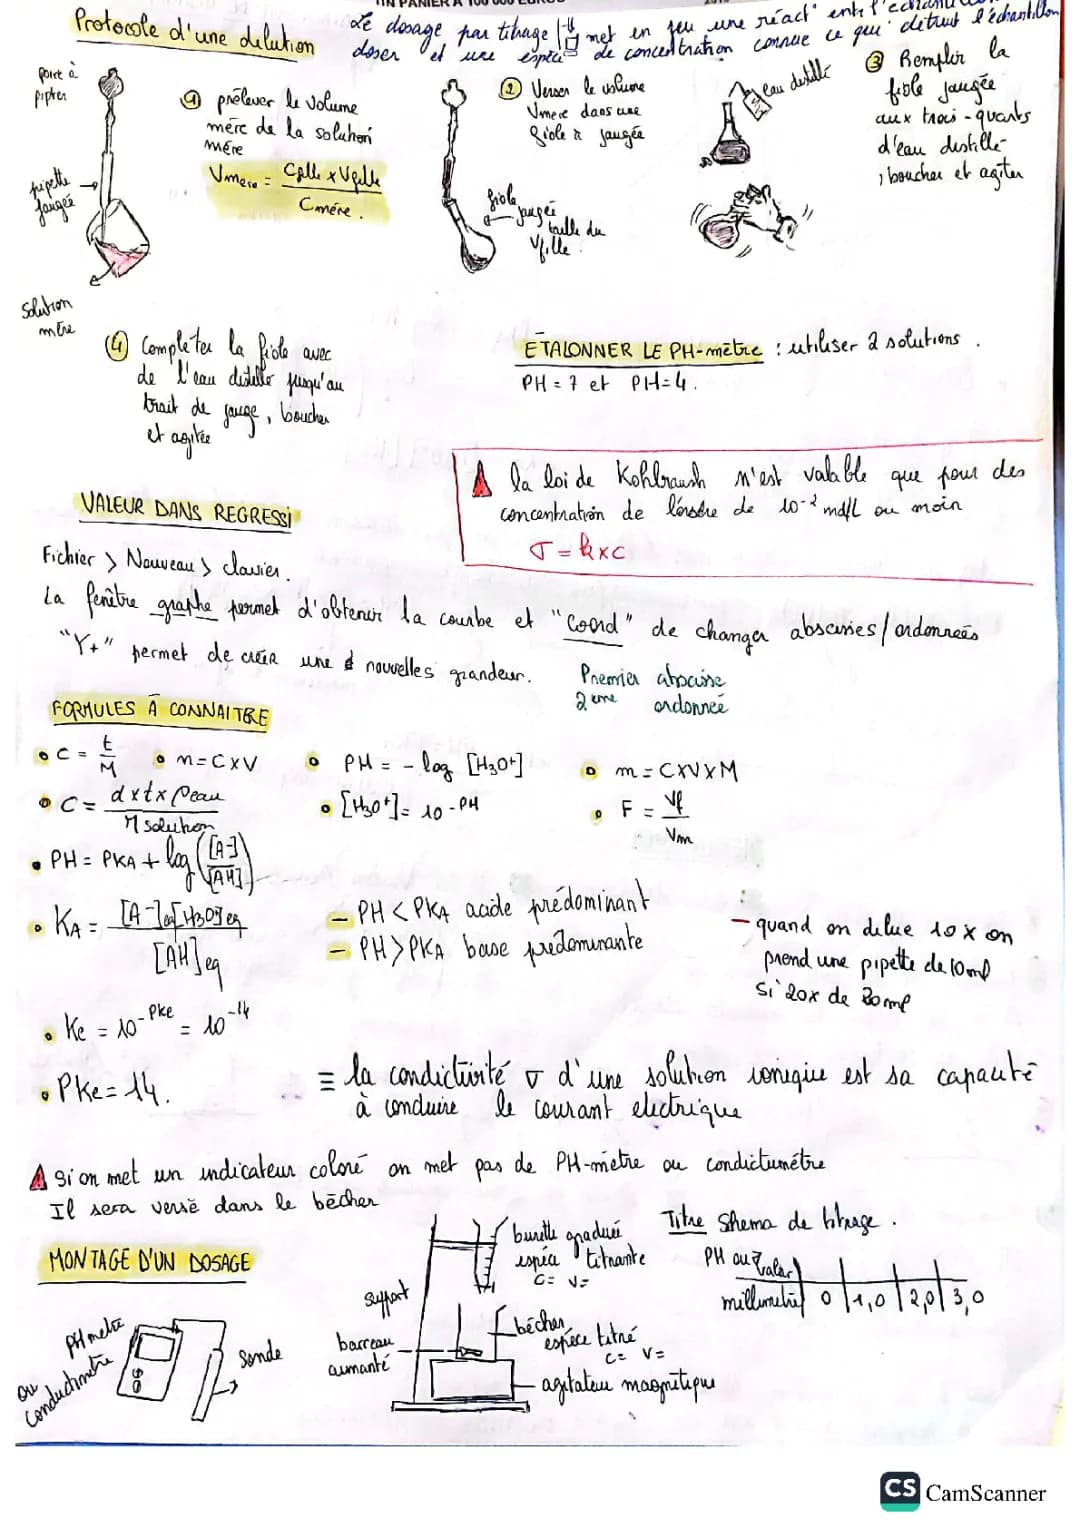 UN PANIER A 100 000 EUROS
Protocole d'une dilution
Le dosage par titrage met en jeu une réact° entre l'échantillon
doser et une espèce de concentration connue ce qui détruit l'échantillon
poire à
pipter
pipette
jaugée
solution
mère
① prélever le volume
mère de la solution
mère
Vmere = Cfille x Vfille / Cmère.
② Verser le volume
Vmere dans une
fiole à jaugée
fiole
jaugée
taille du
Vfille.
eau distillé
③ Remplir la
fiole jaugée
aux trois-quarts
d'eau distillé
, boucher et agiter
④ Completer la fiole avec
de l'eau distillé jusqu'au
trait de jauge, boucher
et agitée
ETALONNER LE PH-mètre : utiliser 2 solutions.
PH = 7 et PH=4.
la loi de Kohlraush n'est valable que pour des
concentration de l'ordre de 10⁻² mol/L ou moin
σ = k x c
VALEUR DANS REGRESSI
Fichier > Nouveau > clavier.
La fenêtre graphe permet d'obtenir la courbe et "coord" de changer abscisses/ordonneés
"Y+" permet de créer une nouvelles grandeur.
Premier abscisse
2eme ordonneé
FORMULES À CONNAITRE
C = t/M
n = C x V
PH = - log [H3O+]
m = C x V x M
C = d x t x ρeau / M solution
[H3O+] = 10 - PH
F = Vf / Vm
PH = PKA + log ([A-]/[AH])
KA = [A-]eq [H3O+]eq / [AH]eq
- PH < PKA acide prédominant
- PH > PKA base prédominante
- quand on dilue 10 x on
prend une pipette de 10 ml
si 20x de 20 ml
Ke = 10-Pke = 10-14
PKe = 14.
= la condictivité σ d'une solution ionique est sa capacité
à conduire le courant electrique
Si on met un indicateur coloré on met pas de PH-mètre ou condictumétre
Il sera versé dans le bécher
MONTAGE D'UN DOSAGE
PH metre
ou
conductimètre
Sonde
support
barreau
aimanté
burette gradué
espèce titrante
C= V=
bécher
espèce titré
C= V=
agitateur magnétique
Titre Shema de titrage.
PH ou
0 1,0 2,0 3,0
CS CamScanner